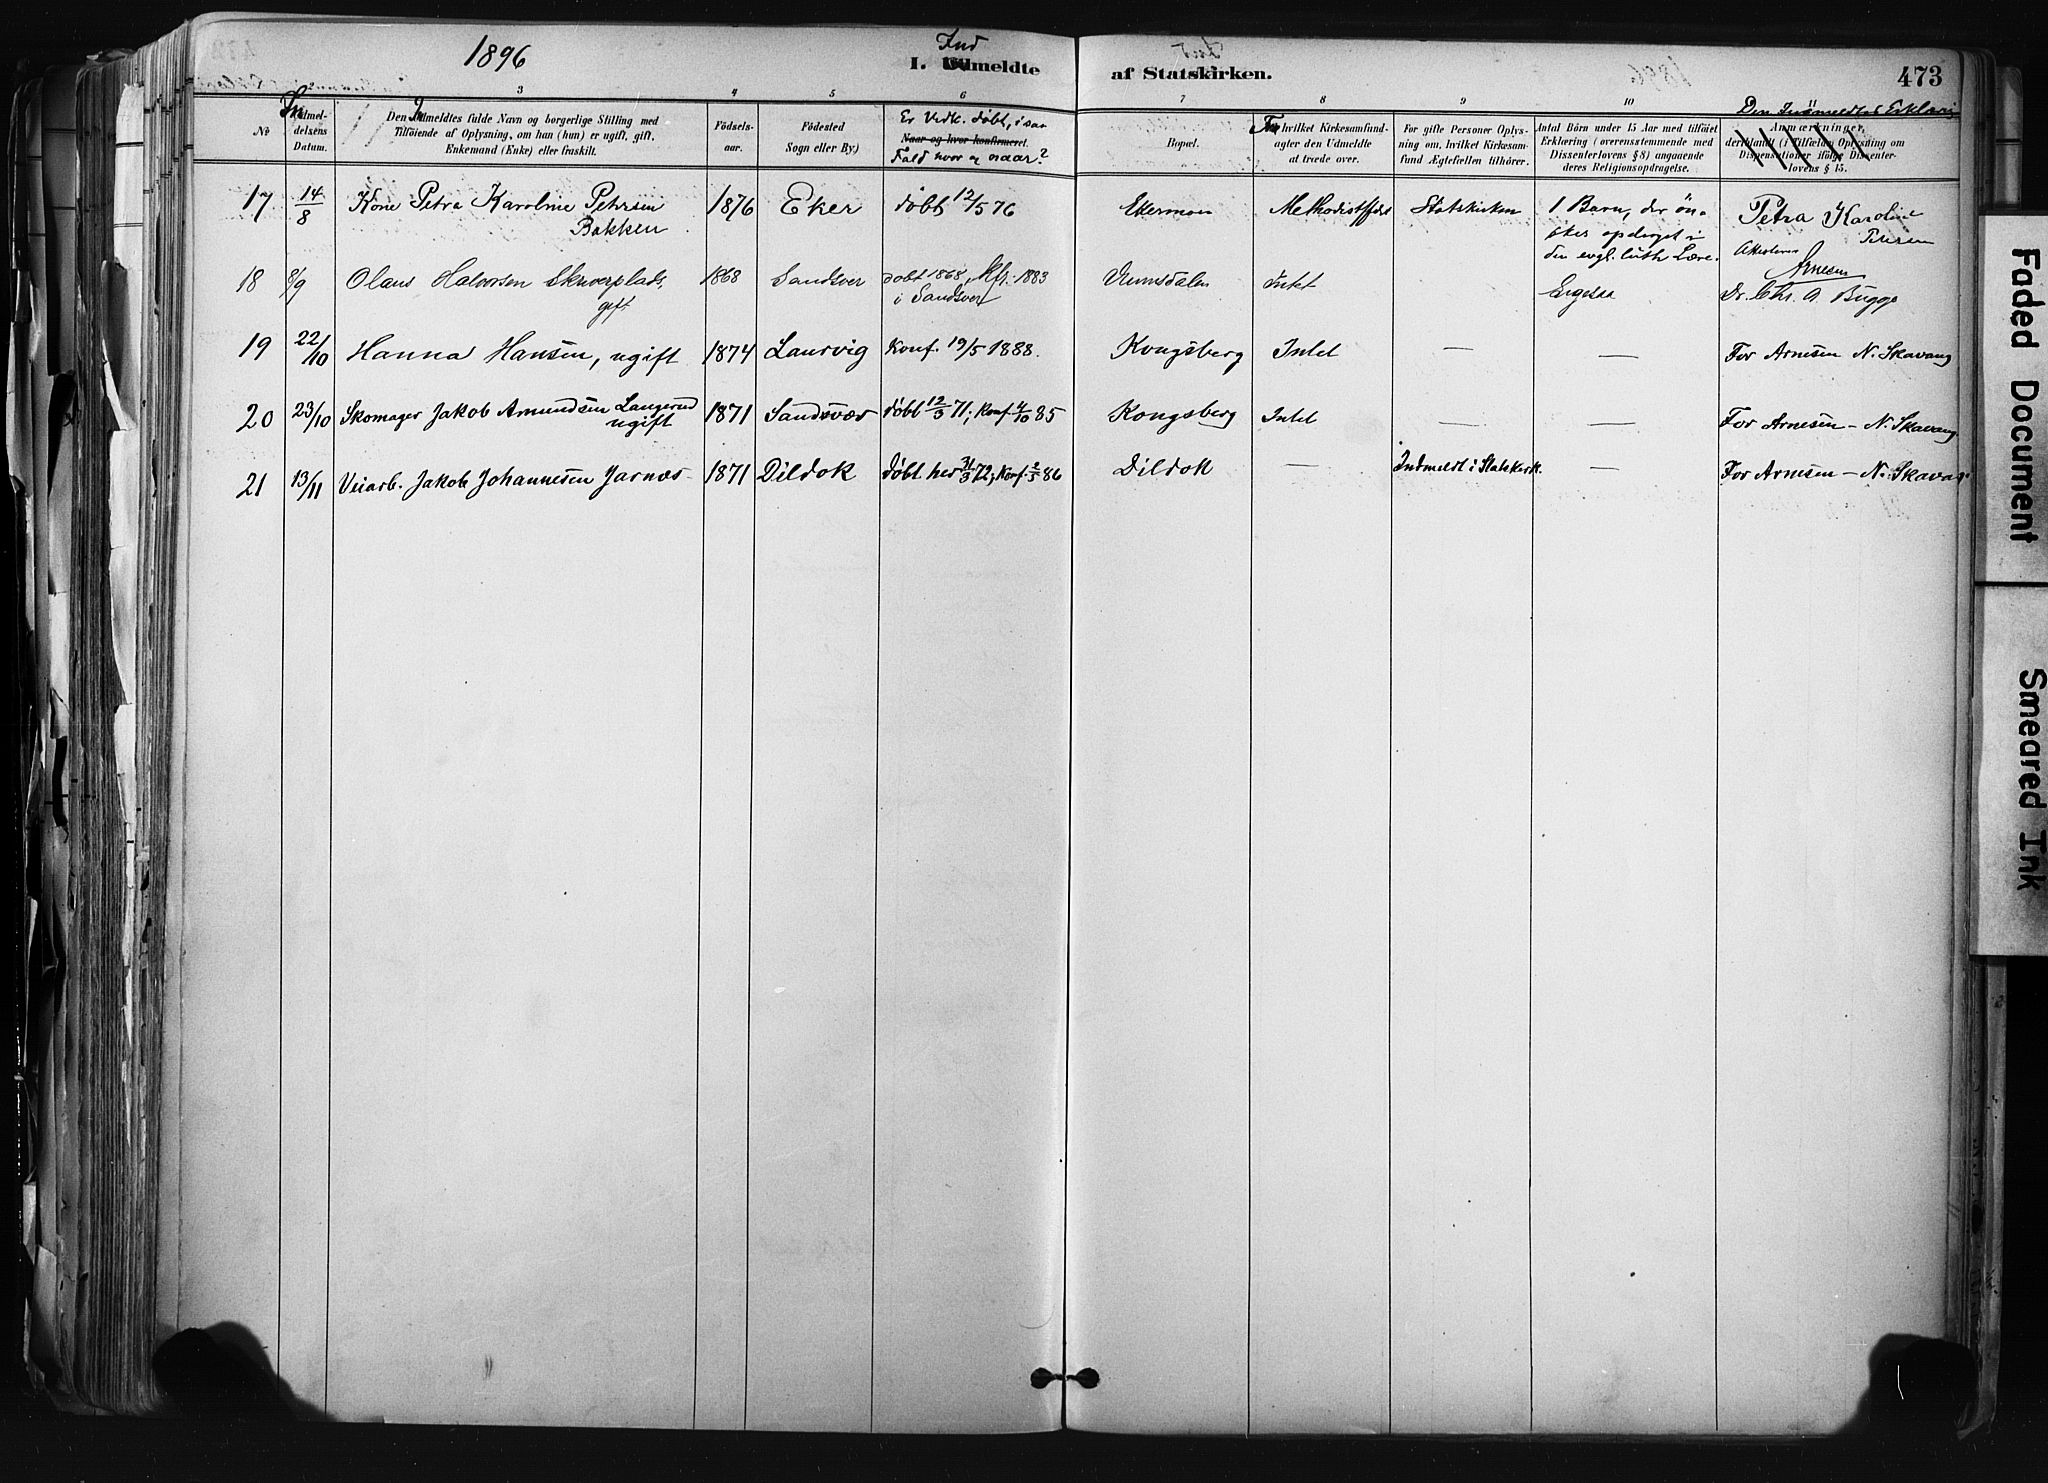 1896
Ind
I. Udmeldte af Statskirken.
473
2 3 4 5 6 7 8 9 10
No
In
Udmel-
delsens
Datum.
Den Udmeldtes fulde Navn og borgerlige Stilling med
Tilföiende af Oplysning, om han (hun) er ugift, gift,
Enkemand (Enke) eller fraskilt.
Födsels-
aar.
Födested
Sogn eller By)
Er Vedk. døbt, i saa
Naar og hvor konfirmeret.
Fald hvor og naar?
Bopæl.
Fra
hvilket Kirkesamfund-
agter den Udmeldte
at træde over.
For gifte Personer Oplys-
ning om, hvilket Kirkesam-
fund Ægtefællen tilhörer.
Antal Börn under 15 Aar med tilföiet
Erklæring (overensstemmende med
Dissenterlovens § 8) angaaende
deres Religionsopdragelse.
Den Indmeldtes Erklæring
Anmærkninger,
deriblandt (i Tilfælde) Oplysning om
Dispensationer ifølge Dissenter-
lovens § 15.
17 14/8 Kone Petra Karoline Petersen Bakken 1876 Eker døbt 12/5 76 Ekermoen Methodistkf Statskirken 1 Barn, der ön-
sker opdraget i
den evgl. luth. Lære.
Petra Karoline
Petersen
Arnesen
18 8/9 Olaus Halvorsen Skuerplads, gift 1868 Sandsver døbt 1868, Kfr. 1883
i Sandsver
Numedalen Intet Dr. Chr. A. Bugge
19 22/10 Hanna Hansen, ugift 1874 Laurvig Konf. 19/5 1888. Kongsberg Intet — — For Arnesen N. Skavang
20 23/10 Skomager Jakob Amundsen Langerud
ugift
1871 Sandsvær døbt 12/3 71; Konf. 4/10 85 Kongsberg Intet — — For Arnesen – N. Skavang
21 13/11 Veiarb. Jakob Johannesen Jarnæs 1871 Dildok døbt her 31/3 72; Konf. 2/5 86 Dildok — Indmeldt i Statskirk. — For Arnesen – N. Skavang
Faded Document
Smeared Ink